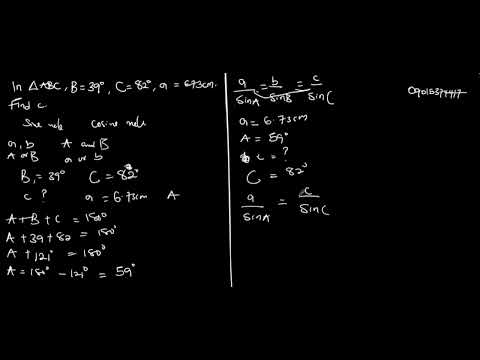 In △ABC, B=39°, C=82°, a=6.73cm.
Find c
Sine rule   Cosine rule
a, b   A and B
A or B   a or b
B = 39°   C = 82°
c ?   a = 6.73cm   A
A + B + C = 180°
A + 39 + 82 = 180°
A + 121° = 180°
A = 180° - 121° = 59°
a/sinA = b/sinB = c/sinC
a = 6.73cm
A = 59°
c = ?
C = 82°
a/sinA = c/sinC